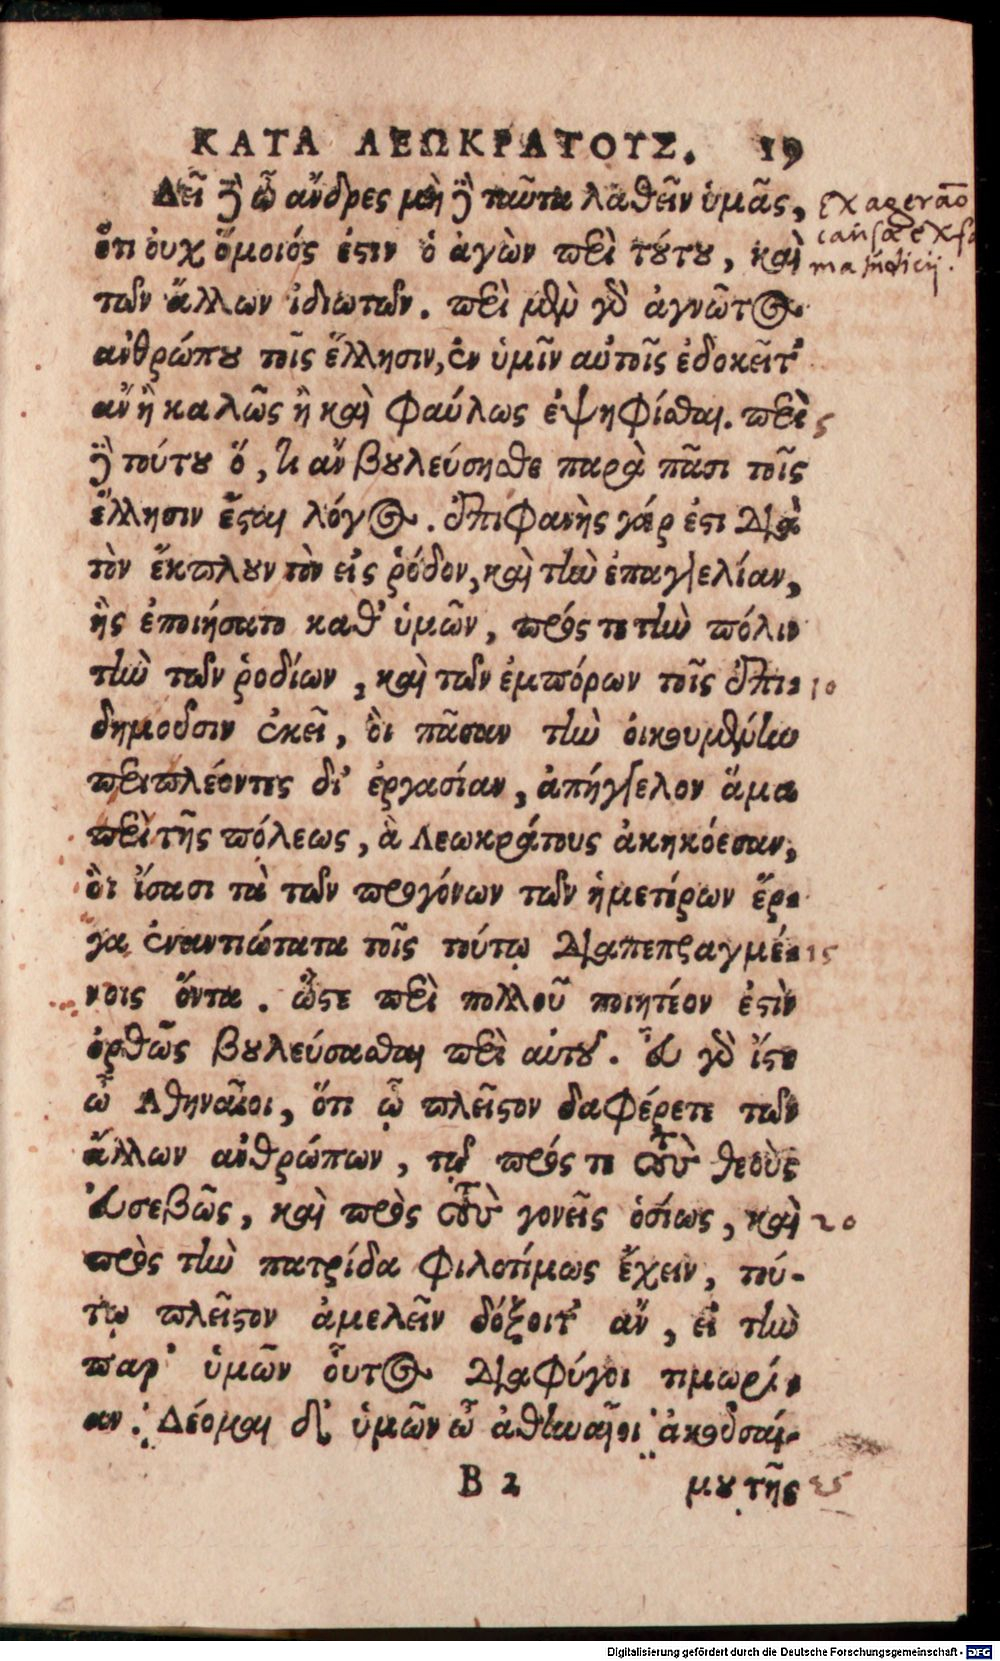 ΚΑΤΑ ΛΕΩΚΡΑΤΟΥΣ. 19
Δεῖ δὲ ὦ ἄνδρες μὴ δὲ ταῦτα λαθεῖν ὑμᾶς,
ὅτι ουχ ὅμοιός ἐστιν ὁ ἀγὼν περὶ τούτου, καὶ
τῶν ἄλλων ἰδιωτῶν. περὶ μὲν γὸ ἀγνῶτος
ἀνθρώπου τοῖς ἕλλησιν, ἐν ὑμῖν αὐτοῖς ἐδοκεῖτ'
ἂν ἢ καλῶς ἢ καὶ φαύλως ἐψηφίσθαι. περὶ 5
δὲ τούτου ὅ, τι ἂν βουλεύσησθε παρὰ πᾶσι τοῖς
ἕλλησιν ἔσται λόγος. ἐπιφανὴς γάρ ἐστι διὰ
τὸν ἔκπλουν τὸν εἰς ῥόδον, καὶ τὴν ἐπαγγελίαν,
ἣς ἐποιήσατο καθ' ὑμῶν, πρός τε τὴν πόλιν
τὴν τῶν ῥοδίων, καὶ τῶν ἐμπόρων τοῖς ἐπι- 10
δημοῦσιν ἐκεῖ, ὃι πᾶσαν τὴν ὀικουμένην
περιπλέοντες δι' ἐργασίαν, ἀπήγγελον ἅμα
περὶ τῆς πόλεως, ἃ Λεωκράτους ἀκηκόεσαν,
ὃι ἴσασι τὰ τῶν προγόνων τῶν ἡμετέρων ἔρ-
γα ἐναντιώτατα τοῖς τούτῳ διαπεπραγμέ- 15
νοις ὄντα. ὥστε περὶ πολλοῦ ποιητέον ἐστὶν
ὀρθῶς βουλεύσασθαι περὶ αὐτοῦ. εὖ γὸ ἴστε
ὦ Αθηναῖοι, ὅτι ᾧ πλεῖστον δαφέρετε τῶν
ἄλλων ἀνθρώπων, τῷ πρός τε τοὺς θεοὺς
εὐσεβῶς, καὶ πρὸς τοὺς γονεῖς ὁσίως, καὶ 20
πρὸς τὴν πατρίδα φιλοτίμως ἔχειν, τού-
τῳ πλεῖστον ἀμελεῖν δόξοιτ' ἂν, εἰ τὴν
παρ' ὑμῶν οὗτος διαφύγοι τιμωρί-
αν. Δέομαι δ' ὑμῶν ὦ ἀθηναῖοι ἀκοῦσαί-
Β 2 μου τῆς 25
exageratio
causae ex fo
ma iudicij.
Digitalisierung gefördert durch die Deutsche Forschungsgemeinschaft - DFG